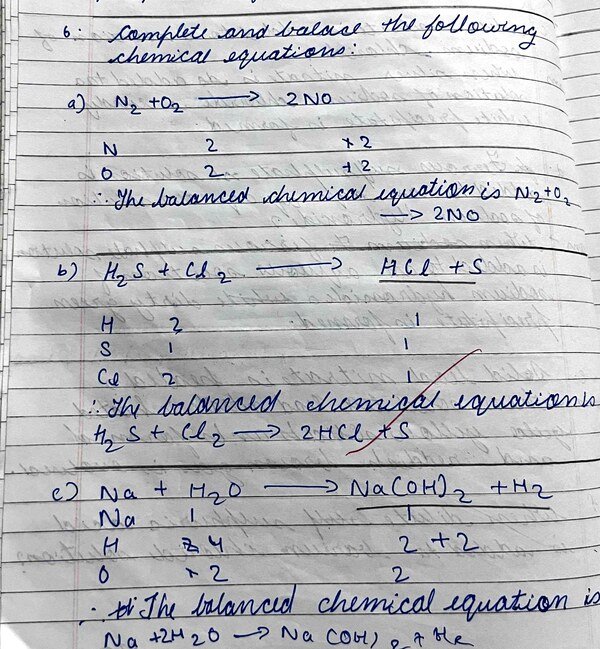 6. Complete and balace the following
chemical equations:
a) N₂ + O₂ → 2NO
N 2 +2
O 2 +2
∴ The balanced chemical equation is N₂+O₂
→ 2NO
b) H₂S + Cl₂ → HCl + S
H 2 1
S 1 1
Cl 2 1
∴ The balanced chemical equation is
H₂S + Cl₂ → 2HCl + S
c) Na + H₂O → Na(OH)₂ + H₂
Na 1 1
H 4 2 + 2
O 2 2
∴ The balanced chemical equation is
Na + 2H₂O → Na(OH)₂ +